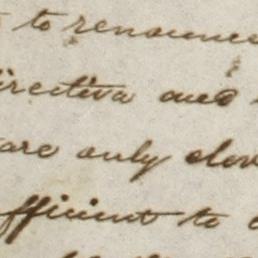 to renounce
directive and
are only elev
fficient to